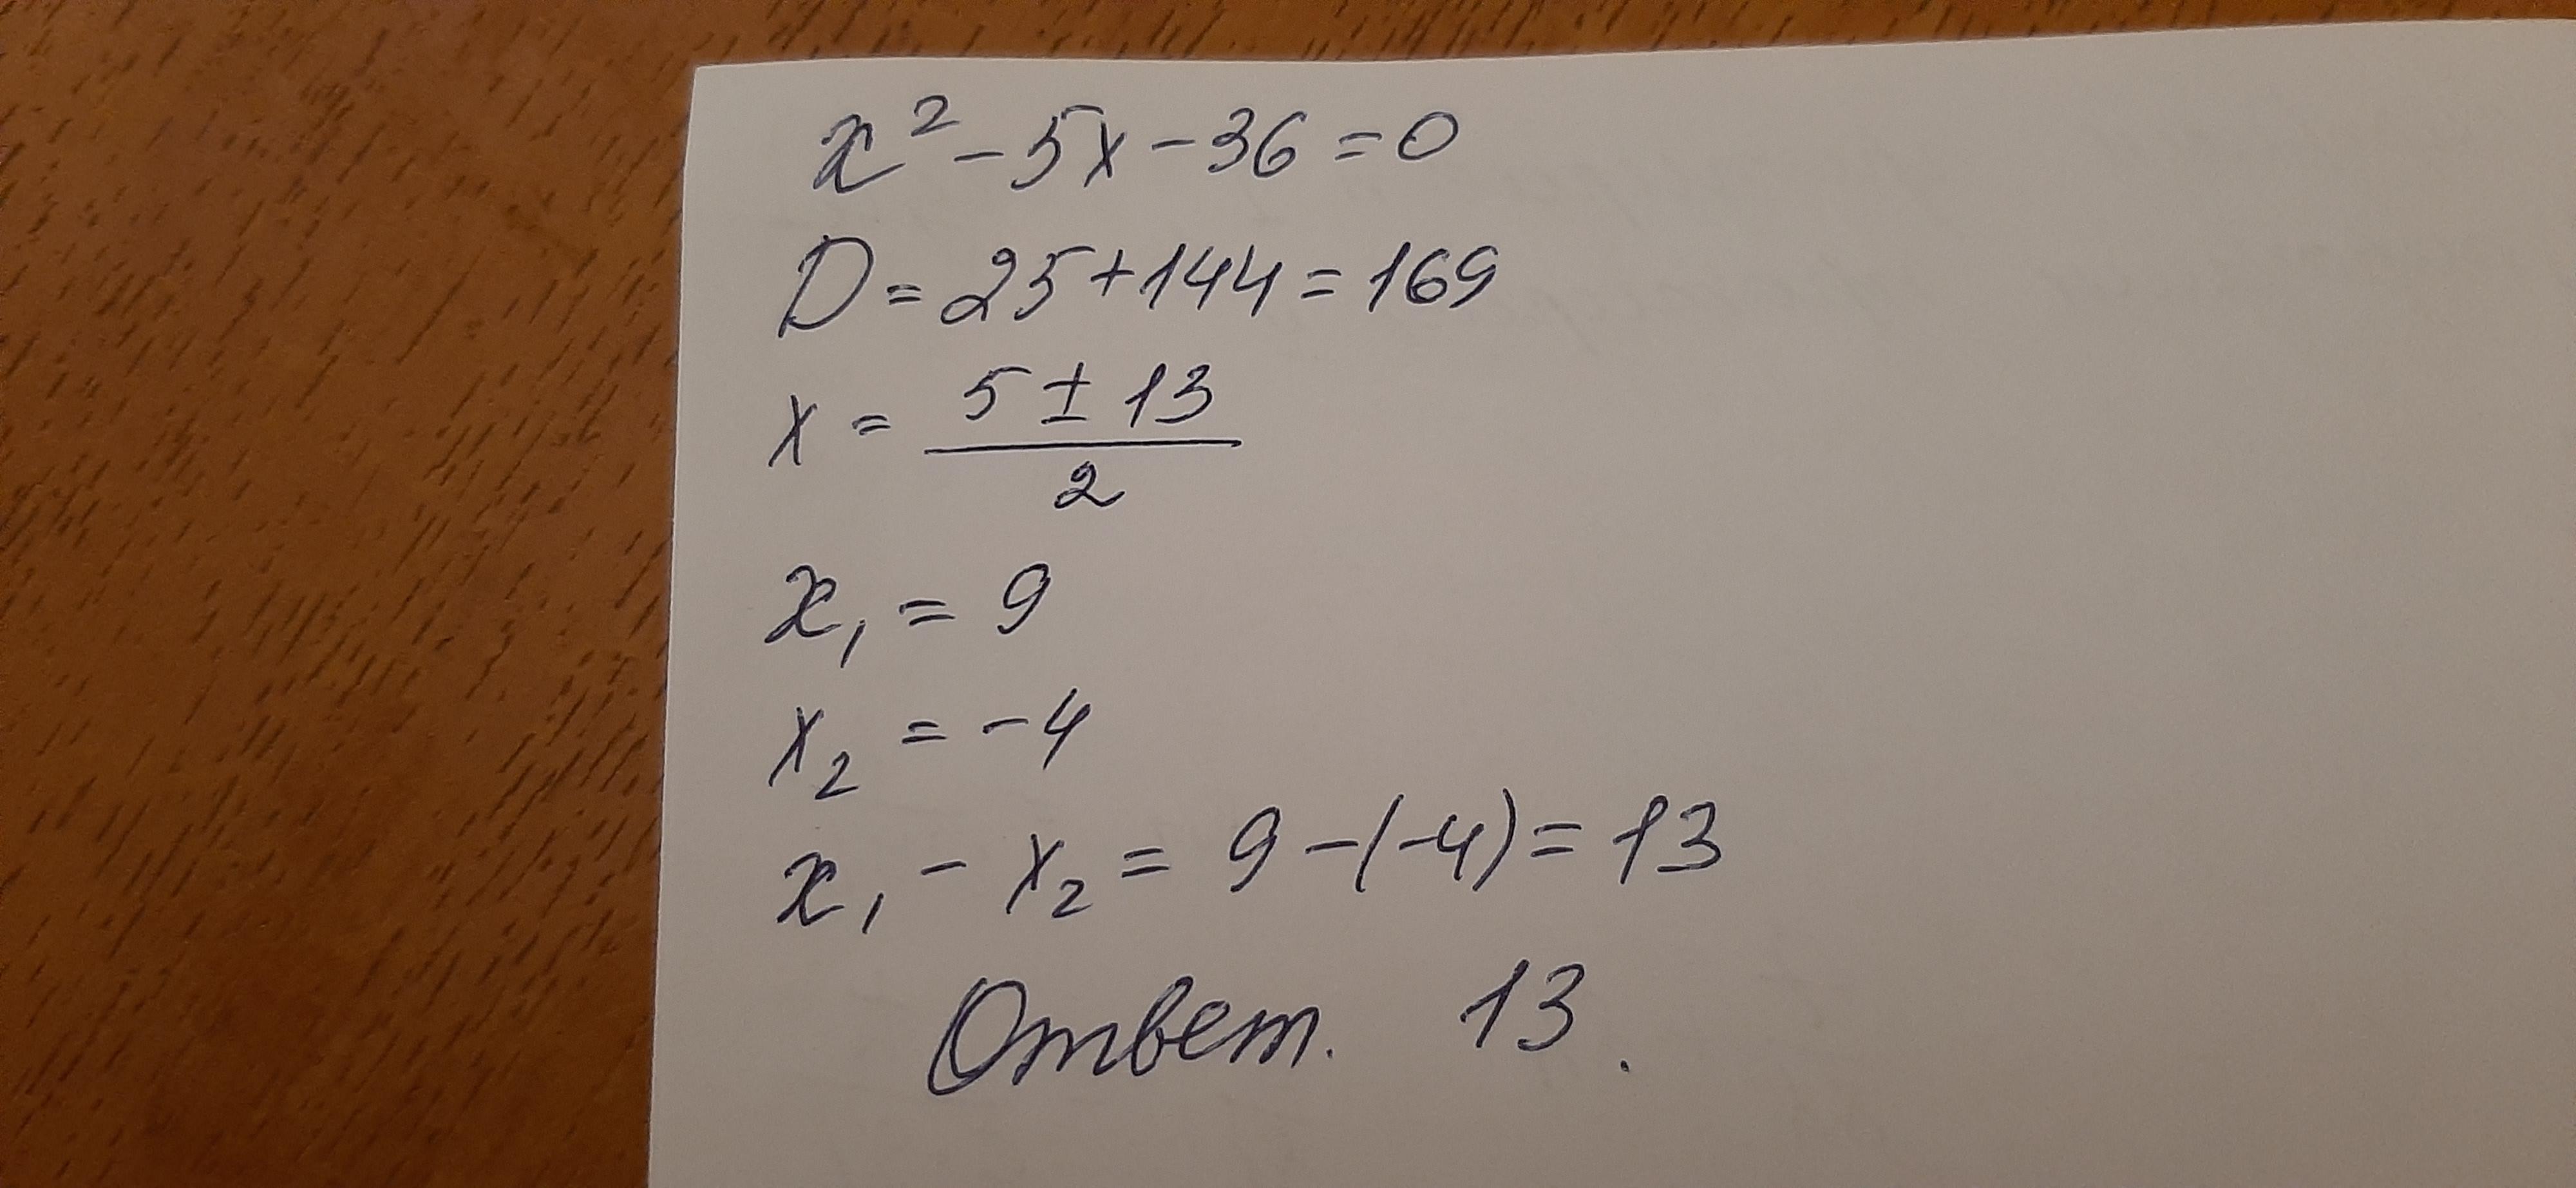 x² - 5x - 36 = 0
D = 25 + 144 = 169
x = (5 ± 13) / 2
x₁ = 9
x₂ = -4
x₁ - x₂ = 9 - (-4) = 13
Ответ. 13.